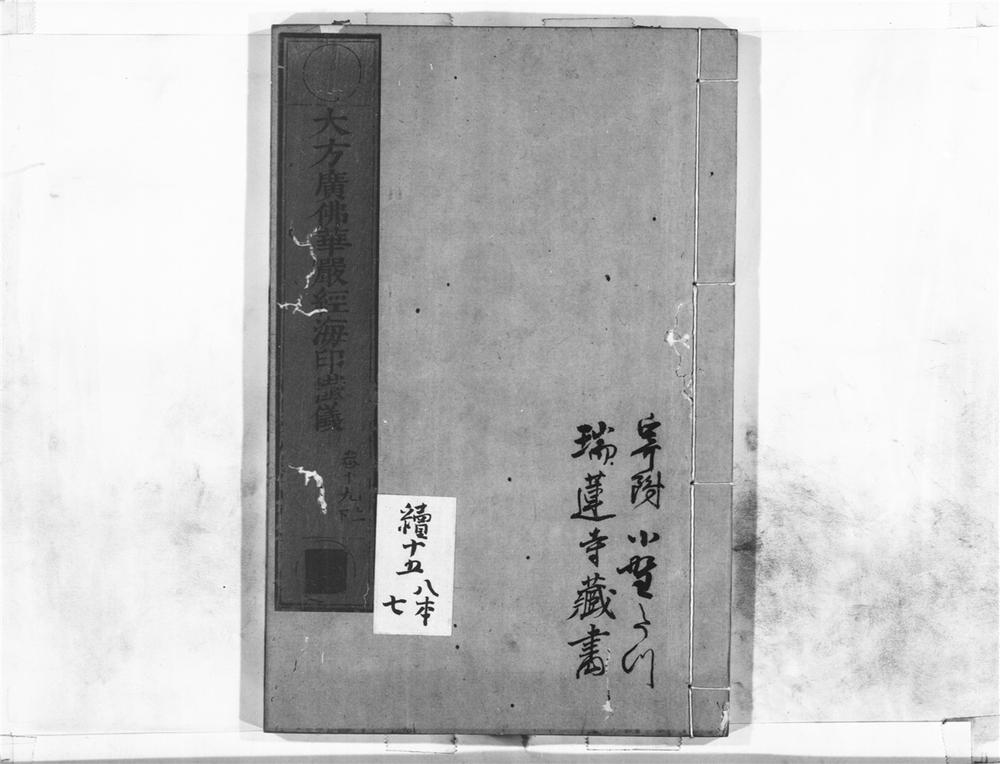 寄附 小野たつ
瑞蓮寺藏書
續十五 八本
七
大方廣佛華嚴經海印道儀
卷十九上下